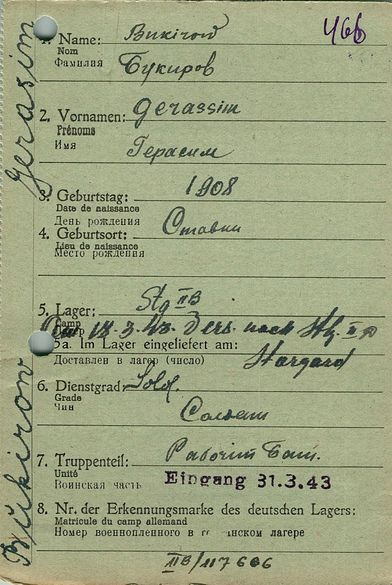 466
1. Name: Bukirow
Nom
Фамилия Букиров
Gerassim
2. Vornamen: Gerassim
Prénoms
Имя Герасим
3. Geburtstag: 1908
Date de naissance
День рождения
4. Geburtsort: Ставки
Lieu de naissance
Место рождения
5. Lager: Stg IIB
Camp
Am 18.3.43 Vers. nach Stg. II D
5a. Im Lager eingeliefert am: Stargard
Доставлен в лагер (число)
6. Dienstgrad: Sold.
Grade
Чин Солдат
Bukirow
7. Truppenteil: Рабочий Бат.
Unité
Воинская часть Eingang 31.3.43
8. Nr. der Erkennungsmarke des deutschen Lagers:
Matricule du camp allemand
Номер военнопленного в лагере
IIB/117666